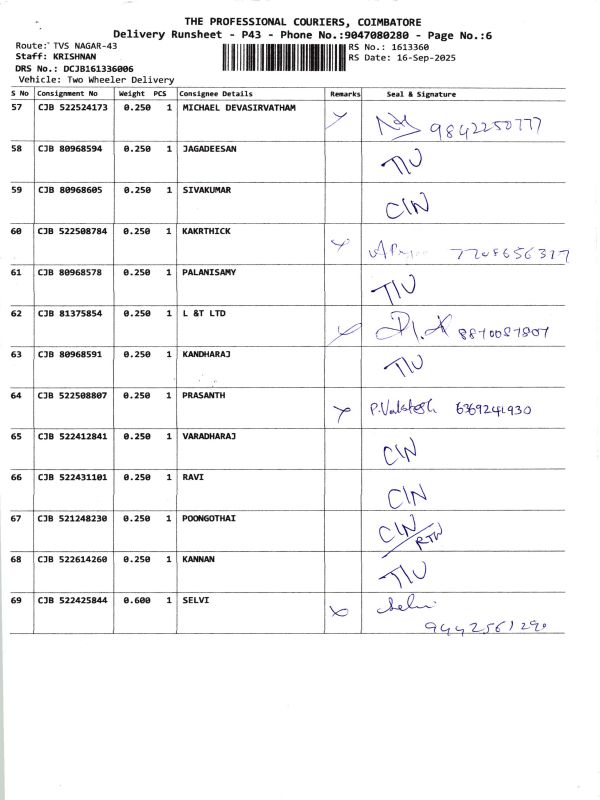 THE PROFESSIONAL COURIERS, COIMBATORE
Delivery Runsheet - P43 - Phone No.:9047080280 - Page No.:6
Route: TVS NAGAR-43 RS No.: 1613360
Staff: KRISHNAN RS Date: 16-Sep-2025
DRS No.: DCJB161336006
Vehicle: Two Wheeler Delivery
S No Consignment No Weight PCS Consignee Details Remarks Seal & Signature
57 CJB 522524173 0.250 1 MICHAEL DEVASIRVATHAM
9842250777
58 CJB 80968594 0.250 1 JAGADEESAN
TIU
59 CJB 80968605 0.250 1 SIVAKUMAR
CIN
60 CJB 522508784 0.250 1 KAKRTHICK
61 CJB 80968578 0.250 1 PALANISAMY
TIU
62 CJB 81375854 0.250 1 L &T LTD
8870087807
63 CJB 80968591 0.250 1 KANDHARAJ
TIU
64 CJB 522508807 0.250 1 PRASANTH
6369241930
65 CJB 522412841 0.250 1 VARADHARAJ
CIN
66 CJB 522431101 0.250 1 RAVI
CIN
67 CJB 521248230 0.250 1 POONGOTHAI
CIN
RTN
68 CJB 522614260 0.250 1 KANNAN
TIU
69 CJB 522425844 0.600 1 SELVI
Selvi
9442561290